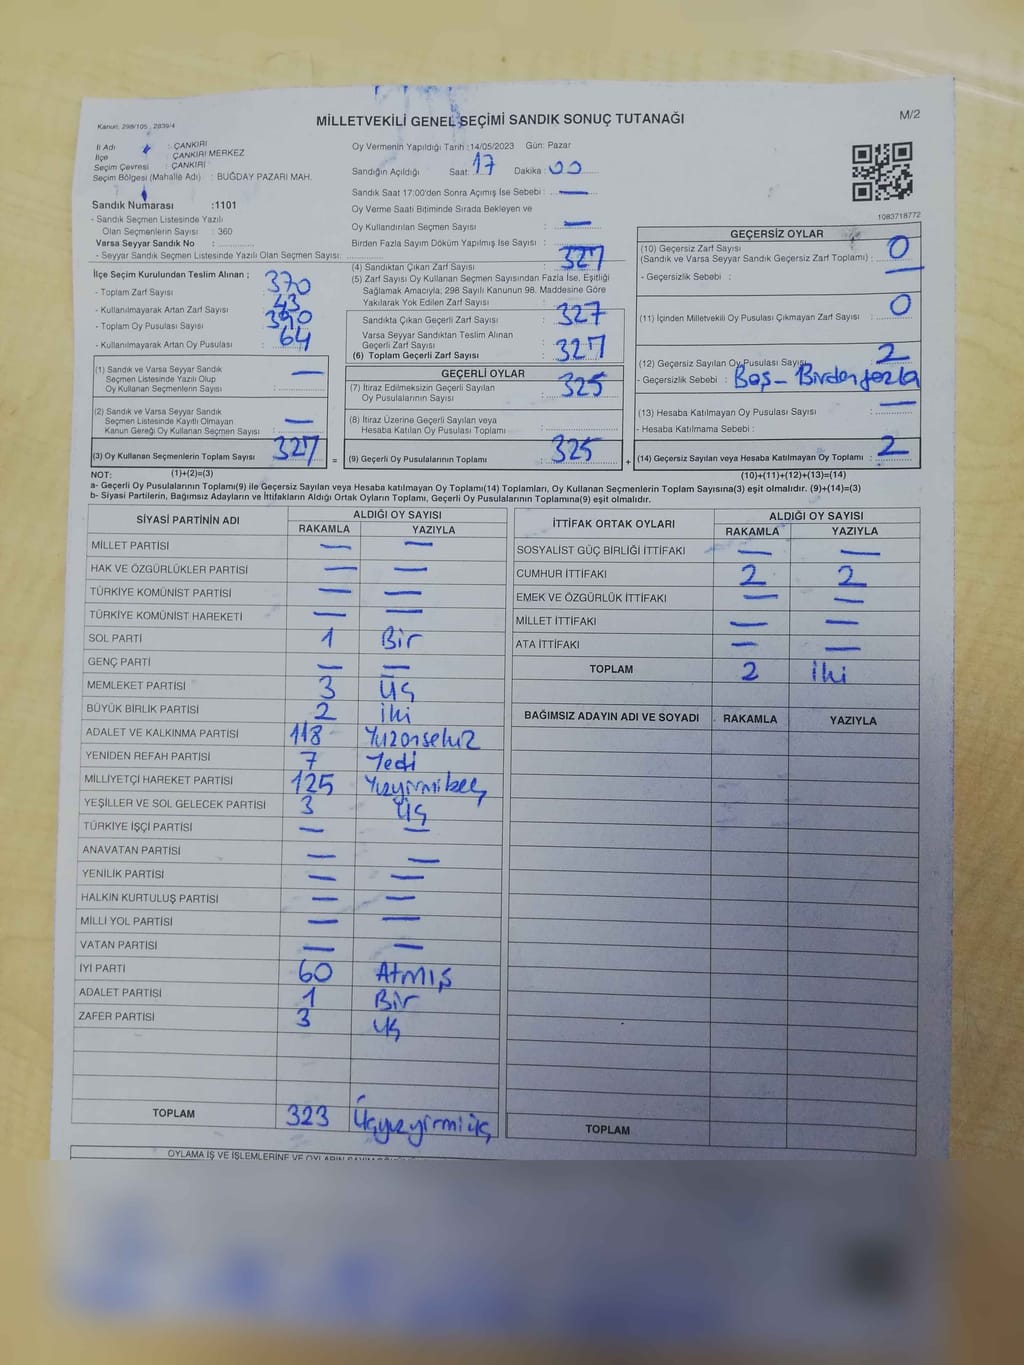 Kanun, 298/105 , 2839/4
MİLLETVEKİLİ GENEL SEÇİMİ SANDIK SONUÇ TUTANAĞI
M/2
İl Adı : ÇANKIRI
İlçe : ÇANKIRI MERKEZ
Seçim Çevresi : ÇANKIRI
Seçim Bölgesi (Mahalle Adı) : BUĞDAY PAZARI MAH.
Sandık Numarası :1101
- Sandık Seçmen Listesinde Yazılı
Olan Seçmenlerin Sayısı : 360
Varsa Seyyar Sandık No :
- Seyyar Sandık Seçmen Listesinde Yazılı Olan Seçmen Sayısı:
İlçe Seçim Kurulundan Teslim Alınan ;
- Toplam Zarf Sayısı : 370
- Kullanılmayarak Artan Zarf Sayısı : 43
- Toplam Oy Pusulası Sayısı : 390
- Kullanılmayarak Artan Oy Pusulası : 64
(1) Sandık ve Varsa Seyyar Sandık
Seçmen Listesinde Yazılı Olup
Oy Kullanan Seçmenlerin Sayısı : —
(2) Sandık ve Varsa Seyyar Sandık
Seçmen Listesinde Kayıtlı Olmayan
Kanun Gereği Oy Kullanan Seçmen Sayısı : —
(3) Oy Kullanan Seçmenlerin Toplam Sayısı : 327
Oy Vermenin Yapıldığı Tarih :14/05/2023 Gün: Pazar
Sandığın Açıldığı Saat: 17 Dakika : 00
Sandık Saat 17:00'den Sonra Açımış İse Sebebi : —
Oy Verme Saati Bitiminde Sırada Bekleyen ve
Oy Kullandırılan Seçmen Sayısı : —
Birden Fazla Sayım Döküm Yapılmış İse Sayısı :
(4) Sandıktan Çıkan Zarf Sayısı : 327
(5) Zarf Sayısı Oy Kullanan Seçmen Sayısından Fazla İse, Eşitliği
Sağlamak Amacıyla, 298 Sayılı Kanunun 98. Maddesine Göre
Yakılarak Yok Edilen Zarf Sayısı :
Sandıkta Çıkan Geçerli Zarf Sayısı : 327
Varsa Seyyar Sandıktan Teslim Alınan
Geçerli Zarf Sayısı :
(6) Toplam Geçerli Zarf Sayısı : 327
GEÇERLİ OYLAR
(7) İtiraz Edilmeksizin Geçerli Sayılan
Oy Pusulalarının Sayısı : 325
(8) İtiraz Üzerine Geçerli Sayılan veya
Hesaba Katılan Oy Pusulası Toplamı :
= (9) Geçerli Oy Pusulalarının Toplamı : 325
1083718772
GEÇERSİZ OYLAR
(10) Geçersiz Zarf Sayısı
(Sandık ve Varsa Seyyar Sandık Geçersiz Zarf Toplamı) : 0
- Geçersizlik Sebebi : —
(11) İçinden Milletvekili Oy Pusulası Çıkmayan Zarf Sayısı : 0
(12) Geçersiz Sayılan Oy Pusulası Sayısı : 2
- Geçersizlik Sebebi : Boş - Birden fazla
(13) Hesaba Katılmayan Oy Pusulası Sayısı : —
- Hesaba Katılmama Sebebi :
+ (14) Geçersiz Sayılan veya Hesaba Katılmayan Oy Toplamı : 2
NOT: (1)+(2)=(3) (10)+(11)+(12)+(13)=(14)
a- Geçerli Oy Pusulalarının Toplamı(9) ile Geçersiz Sayılan veya Hesaba katılmayan Oy Toplamı(14) Toplamları, Oy Kullanan Seçmenlerin Toplam Sayısına(3) eşit olmalıdır. (9)+(14)=(3)
b- Siyasi Partilerin, Bağımsız Adayların ve İttifakların Aldığı Ortak Oyların Toplamı, Geçerli Oy Pusulalarının Toplamına(9) eşit olmalıdır.
SİYASİ PARTİNİN ADI ALDIĞI OY SAYISI
RAKAMLA YAZIYLA
MİLLET PARTİSİ — —
HAK VE ÖZGÜRLÜKLER PARTİSİ — —
TÜRKİYE KOMÜNİST PARTİSİ — —
TÜRKİYE KOMÜNİST HAREKETİ — —
SOL PARTİ 1 Bir
GENÇ PARTİ — —
MEMLEKET PARTİSİ 3 Üç
BÜYÜK BİRLİK PARTİSİ 2 iki
ADALET VE KALKINMA PARTİSİ 118 Yüzonsekiz
YENİDEN REFAH PARTİSİ 7 Yedi
MİLLİYETÇİ HAREKET PARTİSİ 125 Yüzyirmibeş
YEŞİLLER VE SOL GELECEK PARTİSİ 3 Üç
TÜRKİYE İŞÇİ PARTİSİ — —
ANAVATAN PARTİSİ — —
YENİLİK PARTİSİ — —
HALKIN KURTULUŞ PARTİSİ — —
MİLLİ YOL PARTİSİ — —
VATAN PARTİSİ — —
İYİ PARTİ 60 Atmış
ADALET PARTİSİ 1 Bir
ZAFER PARTİSİ 3 üç
TOPLAM 323 Üçyüzyirmiüç
İTTİFAK ORTAK OYLARI ALDIĞI OY SAYISI
RAKAMLA YAZIYLA
SOSYALİST GÜÇ BİRLİĞİ İTTİFAKI — —
CUMHUR İTTİFAKI 2 2
EMEK VE ÖZGÜRLÜK İTTİFAKI — —
MİLLET İTTİFAKI — —
ATA İTTİFAKI — —
TOPLAM 2 iki
BAĞIMSIZ ADAYIN ADI VE SOYADI RAKAMLA YAZIYLA
TOPLAM
OYLAMA İŞ VE İŞLEMLERİNE VE OYLARIN